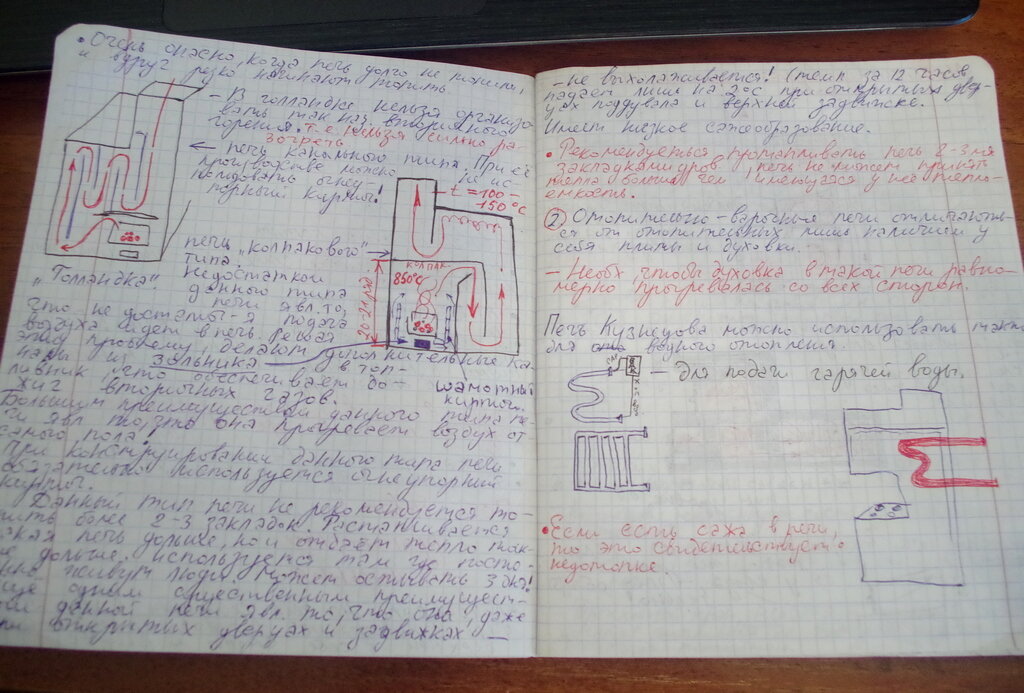 • Очень опасно, когда печь долго не топили,
и вдруг резко начинают топить.
- В голландке нельзя организо-
вать так наз. вторичного
горения. т.е. нельзя сильно ра-
зогреть
← печь канального типа. При её
производстве можно не ис-
пользовать огнеу-
порный кирпич!
t = 100-
150°C
„Голландка“
печь „колпакового“
типа.
Недостатком
данного типа
печи явл. то,
что не достаточ-я подача
воздуха идет в печь. Решая
эту проблему делают дополнительные ка-
налы из зольника в топ-
ливник что обеспечивает до-
жиг вторичных газов.
КОЛПАК
850°C
20-21 ряд
шамотный
кирпич.
Большим преимуществом данного типа пе-
чи явл. то, что она прогревает воздух от
самого пола!
При конструировании данного типа печи
обязательно используется огнеупорный
кирпич.
Данный тип печи не рекомендуется то-
пить более 2-3 закладок. Растапливается
такая печь дольше, но и отдаёт тепло так-
же дольше. Используется там где посто-
янно живут люди. Может остывать 3 дня!
Еще одним существенным преимущест-
вом данной печи явл. то, что она, даже
при открытых дверцах и задвижках —
- не выхолаживается! (темп за 12 часов
падает лишь на 2°C при открытых двер-
цах поддувала и верхней задвижке.
Имеет низкое сажеобразование.
• Рекомендуется протапливать печь 2-3мя
закладками дров, печь не может принять
тепла больше чем имеющаяся у неё тепло-
емкость.
② Отопительно-варочные печи отличают-
ся от отопительных лишь наличием у
себя плиты и духовки.
- Необх чтобы духовка в такой печи равно-
мерно прогревалась со всех сторон.
Печь Кузнецова можно использовать так
для водного отопления.
— для подачи гарячей воды.
• Если есть сажа в печи,
то это свидетельствует о
недотопке.